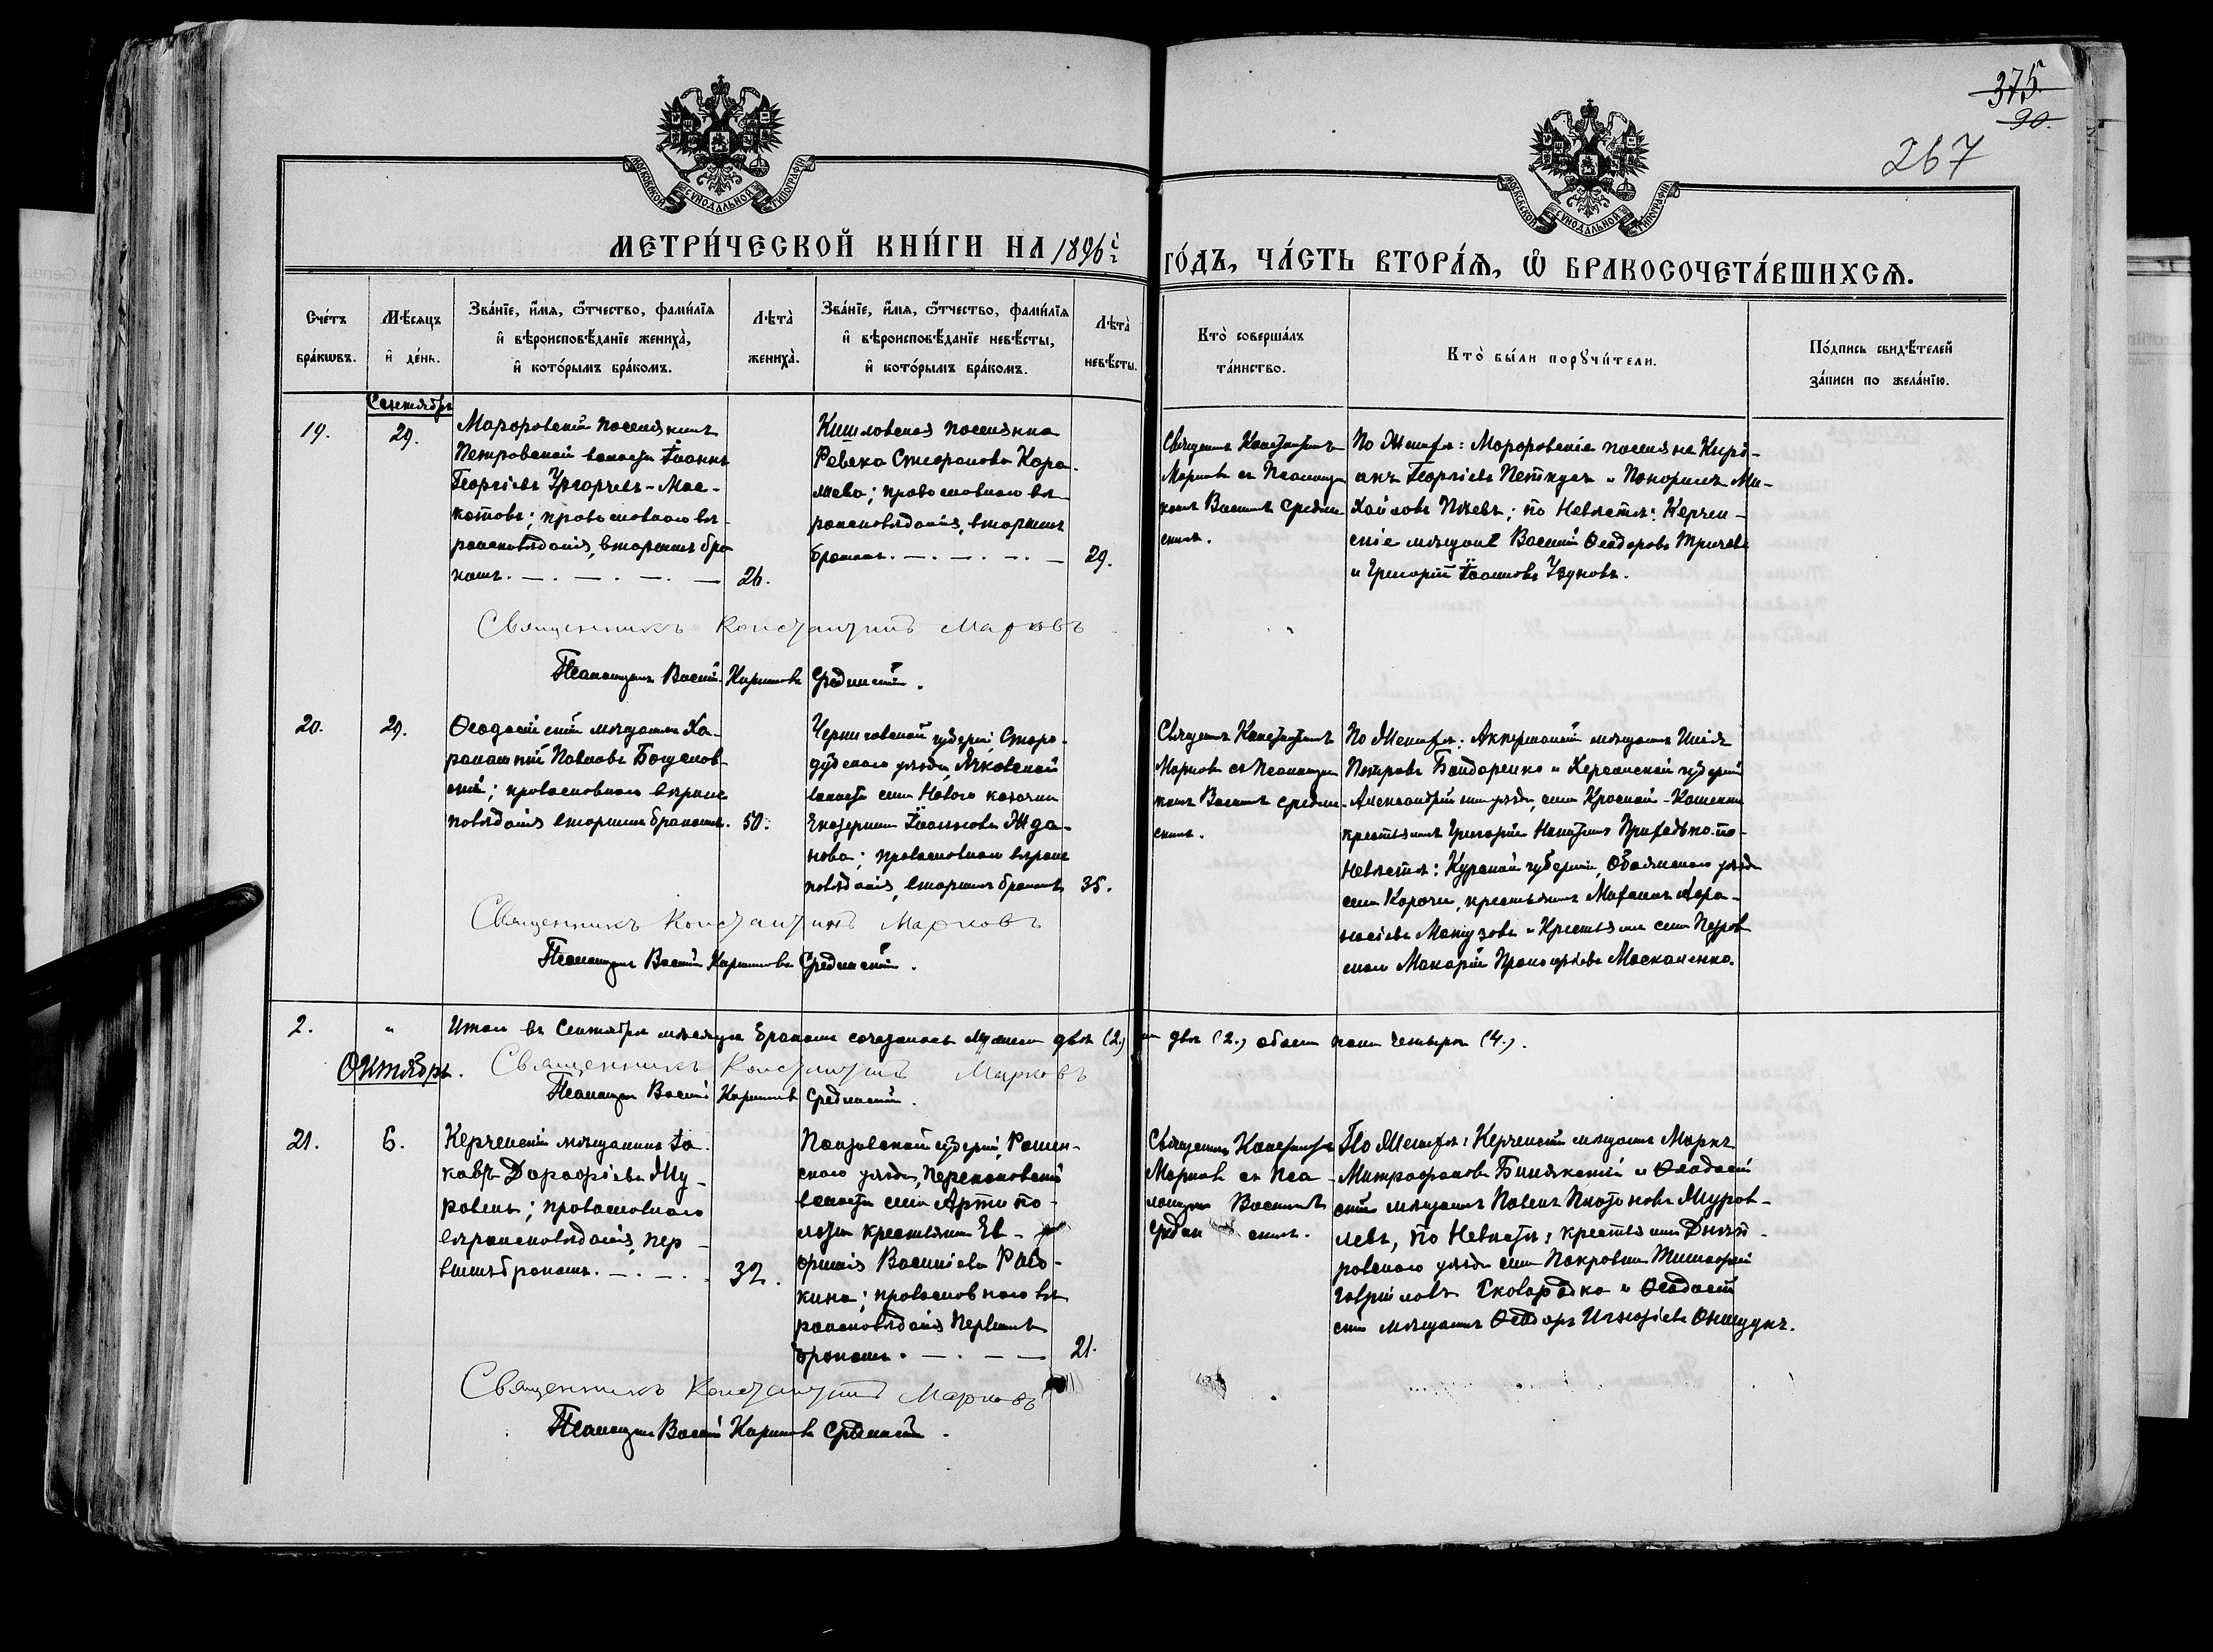 375.
90.
267
МОСКОВСКОЙ СѴНОДАЛЬНОЙ ТИПОГРАФІИ
МОСКОВСКОЙ СѴНОДАЛЬНОЙ ТИПОГРАФІИ
МЕТРИ́ЧЕСКОЙ КНИ́ГИ НА 1896й
ГО́ДЪ, ЧА́СТЬ ВТОРА́Я, Ѡ БРАКОСОЧЕТА́ВШИХСЯ.
Сче́тъ
бра́кѡвъ.
Мѣ́сяцъ
и де́нь.
Зва́нїе, и́мя, ѻ́тчество, фами́лїя
и вѣроисповѣ́данїе жениха̀,
и кото́рымъ бра́комъ.
Лѣта̀
жениха̀.
Зва́нїе, и́мя, ѻ́тчество, фами́лїя
и вѣроисповѣ́данїе невѣ́сты,
и кото́рымъ бра́комъ.
Лѣта̀
невѣ́сты.
Кто̀ соверша́лъ
та́инство.
Кто̀ бы́ли порꙋчи́тели.
По́дпись свидѣ́телей
за́писи по жела́нїю.
Сентябрь
19.
29.
поселянинъ
Петровской волости Іоаннъ
Георгіевъ
православнаго вѣ-
роисповѣданія, вторымъ бра-
комъ.
26.
поселянка
Ревека Стефанова Кара-
православнаго вѣ-
роисповѣданія, вторымъ
бракомъ.
29.
Священникъ Константинъ
Марковъ съ Псаломщи-
комъ Василіемъ Средин-
скимъ.
По Женихѣ: поселяне Кирі-
акъ Георгіевъ и Ми-
хайловъ по Невѣстѣ: Керчен-
скіе мѣщане Василій Ѳеодоровъ
и Григорій Іоанновъ
Священникъ Константинъ Марковъ
Псаломщикъ Василій Срединскій.
20.
29.
Ѳеодосійскій мѣщанинъ Ха-
рлампій Павловъ
православнаго вѣроис-
повѣданія вторымъ бракомъ.
50.
Черниговской губерніи, Старо-
дубскаго уѣзда,
волости села Новаго
Екатерина Іоаннова Жда-
нова; православнаго вѣроис-
повѣданія, вторымъ бракомъ
35.
Священникъ Константинъ
Марковъ съ Псаломщи-
комъ Василіемъ Средин-
скимъ.
По Женихѣ: Аккерманскій мѣщанинъ
Петровъ Бондаренко и Херсонской губерніи
Александрійскаго уѣзда, села Красной-Каменки
крестьянинъ Григорій Никитинъ по
Невѣстѣ: Курской губерніи, Обоянскаго уѣзда
села крестьянинъ Афа-
насіевъ и Крестьянинъ села Петров-
скаго Макарій Прокофіевъ Москаленко.
Священникъ Константинъ Марковъ
Псаломщикъ Василій Срединскій.
2.
"
Итого въ Сентябрѣ мѣсяцѣ бракомъ сочеталось Мужеска двѣ (2.)
двѣ (2.) обоего пола четыре (4.).
Октябрь.
Священникъ Константинъ Марковъ
Псаломщикъ Василій Срединскій.
21.
6.
Керченскій мѣщанинъ Іа-
ковъ Дорофіевъ Жу-
равель; православнаго
вѣроисповѣданія, пер-
вымъ бракомъ.
32.
Полтавской губерніи, Ромен-
скаго уѣзда, Перекоповской
волости села Артипо-
лота крестьянка Ев-
фимія Василіева Рабо-
кина; православнаго вѣ-
роисповѣданія первымъ
бракомъ.
21.
Священникъ Константинъ
Марковъ съ Пса-
ломщикомъ Василіемъ
Средин скимъ.
По Женихѣ: Керченскій мѣщанинъ Маркъ
Митрофановъ и Ѳеодосій-
скій мѣщанинъ Павелъ Платоновъ Журав-
левъ, по Невѣстѣ: крестьянинъ Днѣп-
ровскаго уѣзда села Покровки Тимофей
Гавріиловъ Сковородка и Ѳеодосій-
скій мѣщанинъ Ѳеодоръ Игнатіевъ Онищукъ.
Священникъ Константинъ Марковъ
Псаломщикъ Василій Срединскій.